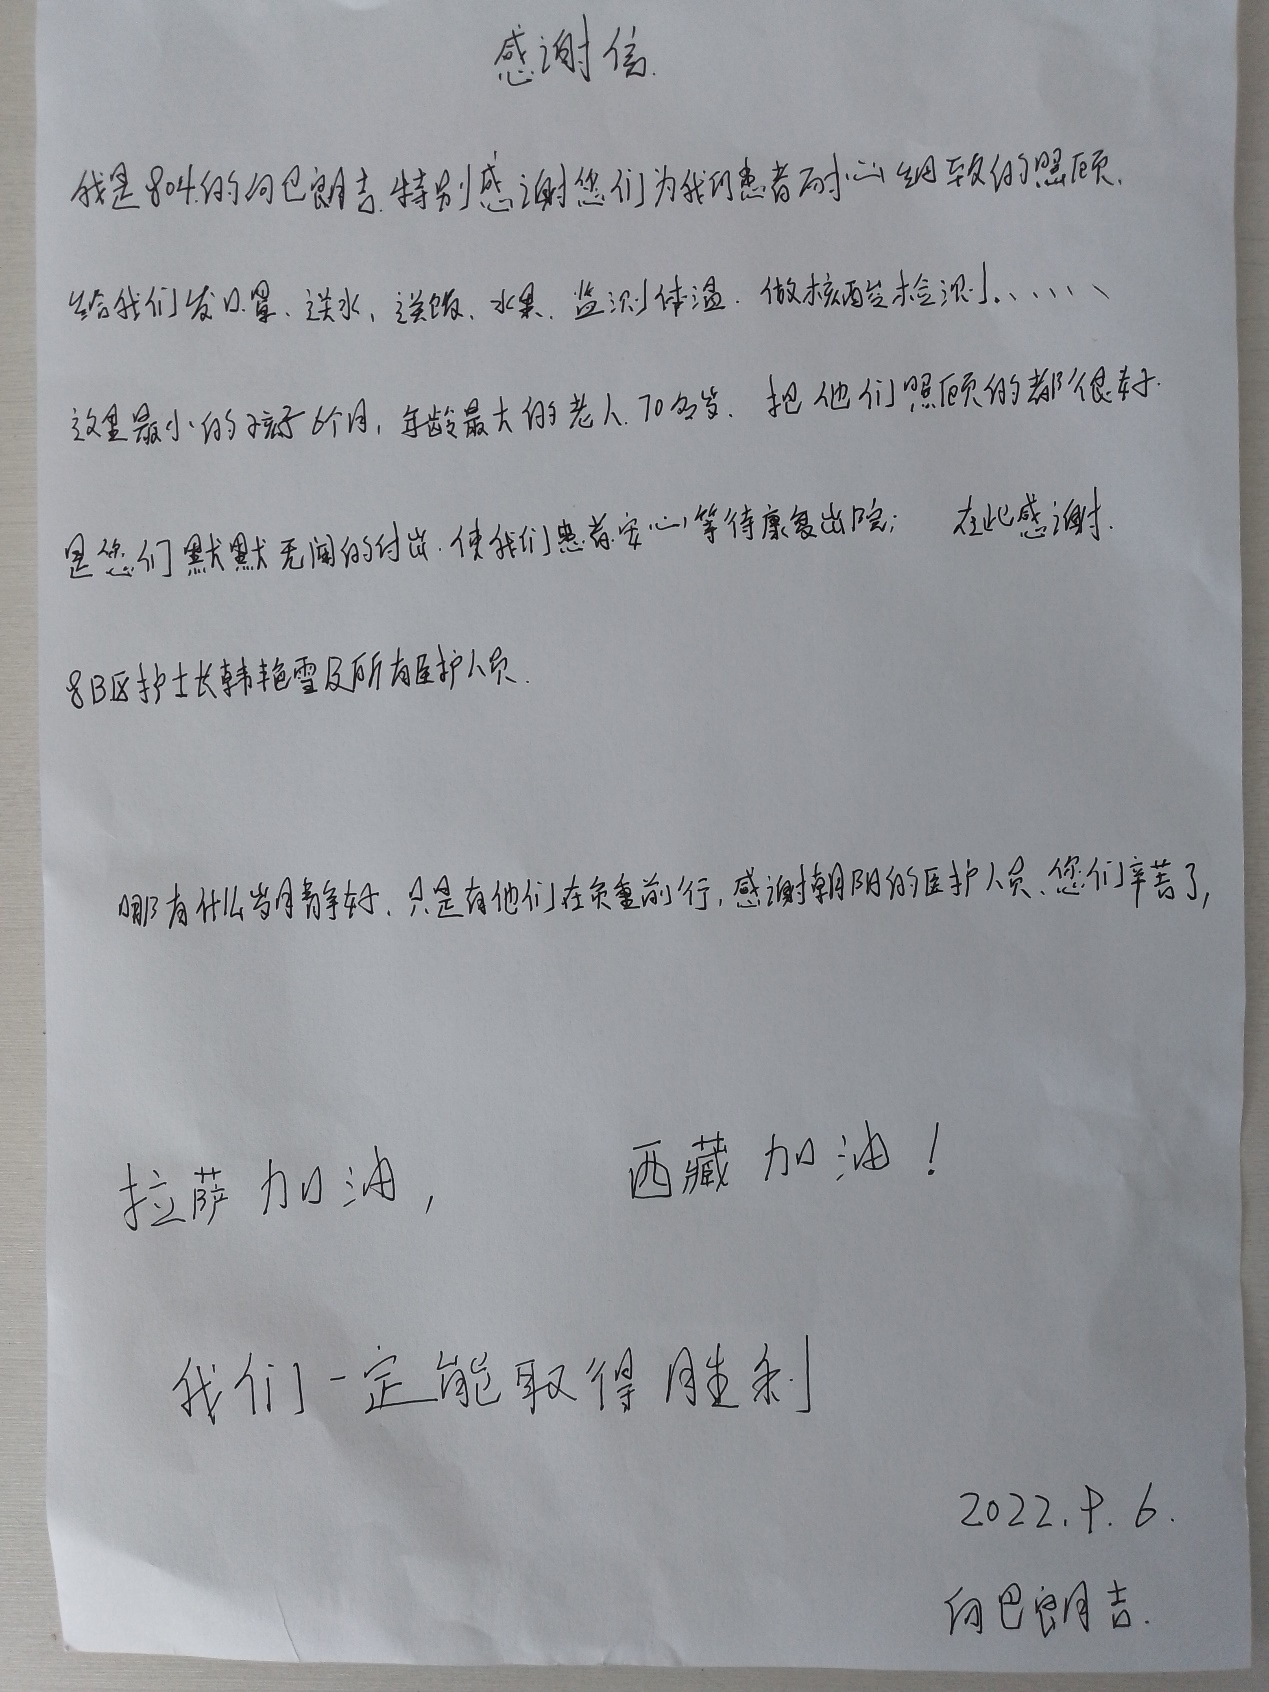 感谢信.
我是804的向巴朗吉.特别感谢您们为我们患者耐心细致的照顾.
给我们发口罩、送水,送饭、水果、监测体温.做核酸检测、、、、、、
这里最小的孩子6个月,年龄最大的老人.70多岁.把他们照顾的都很好.
是您们默默无闻的付出.使我们患者安心等待康复出院; 在此感谢.
8B区护士长韩艳雪及所有医护人员.
哪有什么岁月静好.只是有他们在负重前行,感谢朝阳的医护人员、您们辛苦了,
拉萨加油, 西藏加油!
我们一定能取得胜利
2022.9.6.
向巴朗吉.